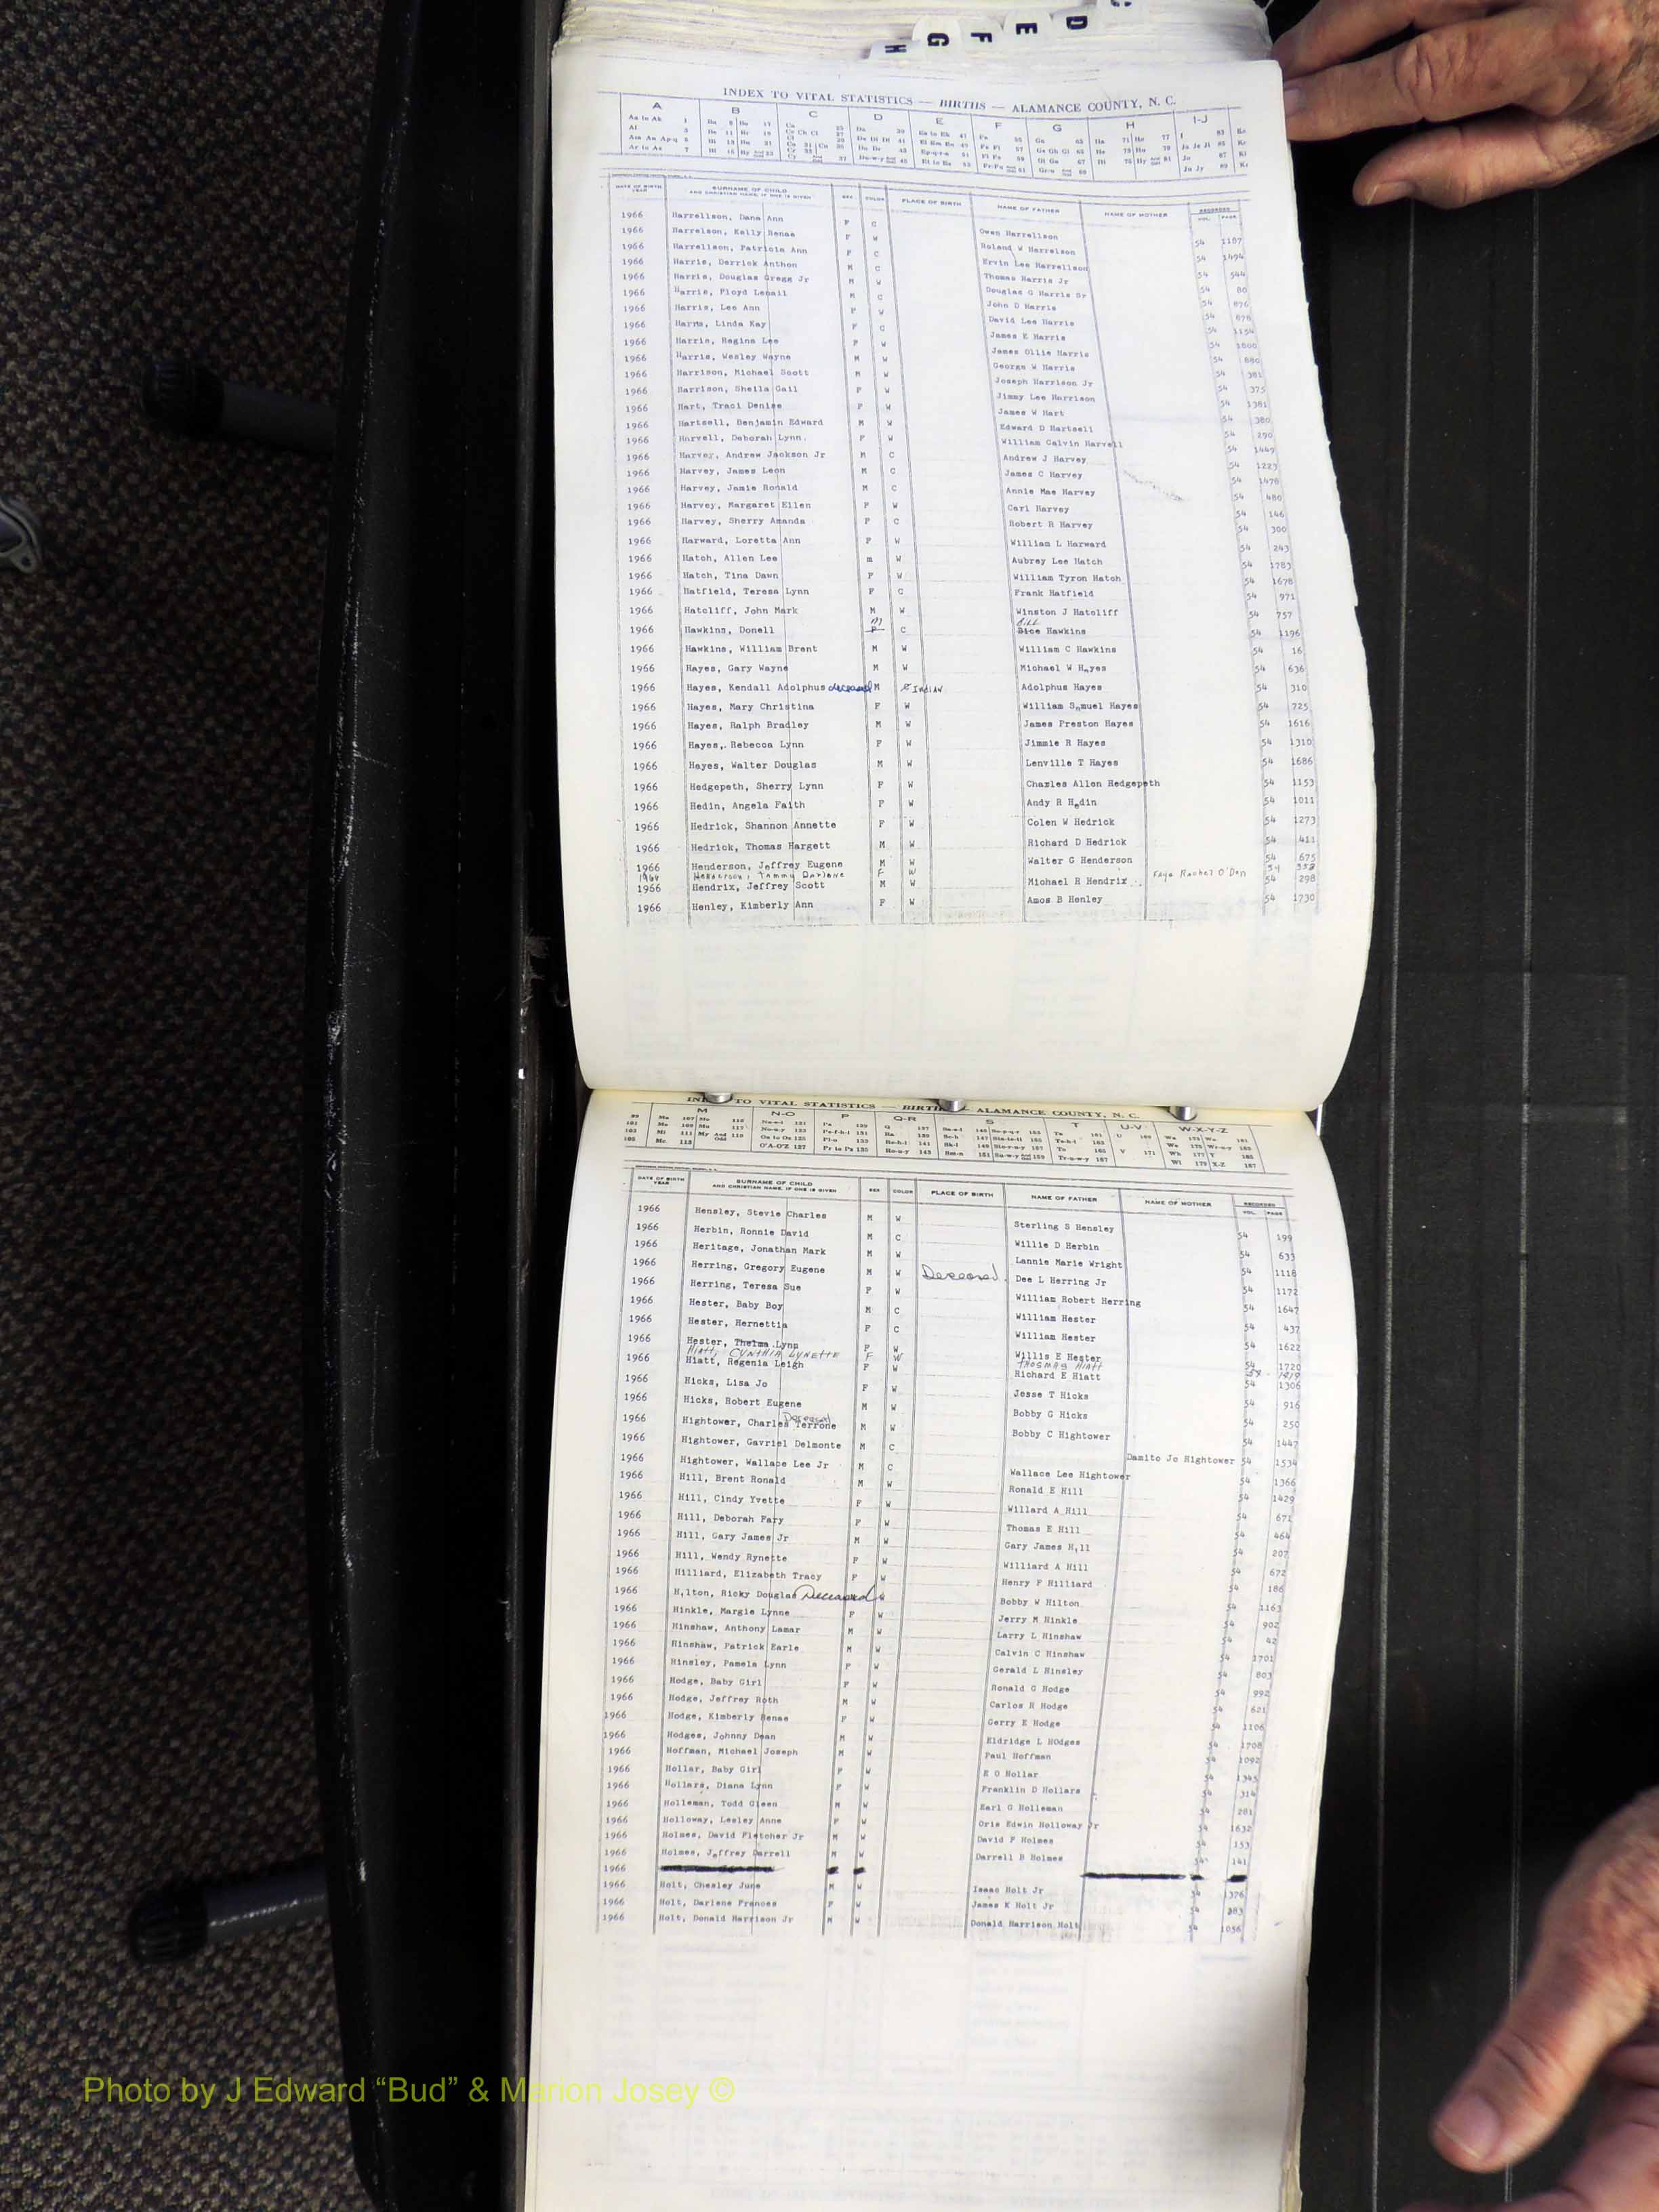 D
E
F
G
H
INDEX TO VITAL STATISTICS — BIRTHS — ALAMANCE COUNTY, N. C.
A B C D E F G H I-J
DATE OF BIRTH YEAR SURNAME OF CHILD AND CHRISTIAN NAME, IF ONE IS GIVEN SEX COLOR PLACE OF BIRTH NAME OF FATHER NAME OF MOTHER RECORDED VOL. PAGE
1966 Harrellson, Dana Ann F C Owen Harrellson 54 1187
1966 Harrelson, Kelly Renae F W Roland W Harrelson 54 1494
1966 Harrellson, Patricia Ann F C Ervin Lee Harrellson 54 544
1966 Harris, Derrick Anthon M C Thomas Harris Jr 54 80
1966 Harris, Douglas Gregg Jr M W Douglas G Harris Sr 54 876
1966 Harris, Floyd Lenail M C John D Harris 54 878
1966 Harris, Lee Ann F W David Lee Harris 54 1154
1966 Harris, Linda Kay F C James E Harris 54 1800
1966 Harris, Regina Lee F W James Ollie Harris 54 880
1966 Harris, Wesley Wayne M W George W Harris 54 381
1966 Harrison, Michael Scott M W Joseph Harrison Jr 54 375
1966 Harrison, Sheila Gail F W Jimmy Lee Harrison 54 1381
1966 Hart, Traci Denise F W James W Hart 54 380
1966 Hartsell, Benjamin Edward M W Edward D Hartsell 54 290
1966 Harvell, Deborah Lynn. F W William Calvin Harvell 54 1449
1966 Harvey, Andrew Jackson Jr M C Andrew J Harvey 54 1223
1966 Harvey, James Leon M C James C Harvey 54 1478
1966 Harvey, Jamie Ronald M C Annie Mae Harvey 54 480
1966 Harvey, Margaret Ellen F W Carl Harvey 54 146
1966 Harvey, Sherry Amanda F C Robert R Harvey 54 300
1966 Harward, Loretta Ann F W William L Harward 54 243
1966 Hatch, Allen Lee m W Aubrey Lee Hatch 54 1783
1966 Hatch, Tina Dawn F W William Tyron Hatch 54 1678
1966 Hatfield, Teresa Lynn F C Frank Hatfield 54 971
1966 Hatcliff, John Mark M W Winston J Hatcliff 54 757
M Bill
1966 Hawkins, Donell F C Bice Hawkins 54 1196
1966 Hawkins, William Brent M W William C Hawkins 54 16
1966 Hayes, Gary Wayne M W Michael W Hayes 54 636
1966 Hayes, Kendall Adolphus deceased M C Indian Adolphus Hayes 54 310
1966 Hayes, Mary Christina F W William Samuel Hayes 54 725
1966 Hayes, Ralph Bradley M W James Preston Hayes 54 1616
1966 Hayes,. Rebecca Lynn F W Jimmie R Hayes 54 1310
1966 Hayes, Walter Douglas M W Lenville T Hayes 54 1686
1966 Hedgepeth, Sherry Lynn F W Charles Allen Hedgepeth 54 1153
1966 Hedin, Angela Faith F W Andy R Hedin 54 1011
1966 Hedrick, Shannon Annette F W Colen W Hedrick 54 1273
1966 Hedrick, Thomas Hargett M W Richard D Hedrick 54 411
1966 Henderson, Jeffrey Eugene M W Walter G Henderson 54 675
1966 Henderson, Tammy Darlene F W Faye Rachel O'Den 54 558
1966 Hendrix, Jeffrey Scott M W Michael R Hendrix 54 298
1966 Henley, Kimberly Ann F W Amos B Henley 54 1730
INDEX TO VITAL STATISTICS — BIRTHS — ALAMANCE COUNTY, N. C.
M N-O P Q-R S T U-V W-X-Y-Z
DATE OF BIRTH YEAR SURNAME OF CHILD AND CHRISTIAN NAME, IF ONE IS GIVEN SEX COLOR PLACE OF BIRTH NAME OF FATHER NAME OF MOTHER RECORDED VOL. PAGE
1966 Hensley, Stevie Charles M W Sterling S Hensley 54 199
1966 Herbin, Ronnie David M C Willie D Herbin 54 633
1966 Heritage, Jonathan Mark M W Lannie Marie Wright 54 1118
1966 Herring, Gregory Eugene M W Deceased. Dee L Herring Jr 54 1172
1966 Herring, Teresa Sue F W William Robert Herring 54 1647
1966 Hester, Baby Boy M C William Hester 54 437
1966 Hester, Hernettia F C William Hester 54 1622
1966 Hester, Thelma Lynn F W Willis E Hester 54 1720
Hiatt, CYNTHIA LYNETTE F W THOMAS HIATT 1919
1966 Hiatt, Regenia Leigh F W Richard E Hiatt 54 1306
1966 Hicks, Lisa Jo F W Jesse T Hicks 54 916
1966 Hicks, Robert Eugene M W Bobby G Hicks 54 250
Deceased
1966 Hightower, Charles Terrone M W Bobby C Hightower 54 1447
1966 Hightower, Gavriel Delmonte M C Damito Jo Hightower 54 1534
1966 Hightower, Wallace Lee Jr M C Wallace Lee Hightower 54 1366
1966 Hill, Brent Ronald M W Ronald E Hill 54 1429
1966 Hill, Cindy Yvette F W Willard A Hill 54 671
1966 Hill, Deborah Fary F W Thomas E Hill 54 464
1966 Hill, Gary James Jr M W Gary James Hill 54 207
1966 Hill, Wendy Rynette F W Williard A Hill 54 672
1966 Hilliard, Elizabeth Tracy F W Henry F Hilliard 54 186
1966 Hilton, Ricky Douglas Deceased W Bobby W Hilton 54 1163
1966 Hinkle, Margie Lynne F W Jerry M Hinkle 54 902
1966 Hinshaw, Anthony Lamar M W Larry L Hinshaw 54 42
1966 Hinshaw, Patrick Earle M W Calvin C Hinshaw 54 1701
1966 Hinsley, Pamela Lynn F W Gerald L Hinsley 54 803
1966 Hodge, Baby Girl F W Ronald G Hodge 54 992
1966 Hodge, Jeffrey Roth M W Carlos R Hodge 54 621
1966 Hodge, Kimberly Renae F W Gerry E Hodge 54 1106
1966 Hodges, Johnny Dean M W Eldridge L HOdges 54 1708
1966 Hoffman, Michael Joseph M W Paul Hoffman 54 1092
1966 Hollar, Baby Girl F W E O Hollar 54 1345
1966 Hollars, Diana Lynn F W Franklin D Hollars 54 314
1966 Holleman, Todd Gleen M W Earl G Holleman 54 281
1966 Holloway, Lesley Anne F W Oris Edwin Holloway Jr 54 1632
1966 Holmes, David Fletcher Jr M W David F Holmes 54 153
1966 Holmes, Jeffrey Darrell M W Darrell B Holmes 54 141
1966
1966 Holt, Chesley June M W Isaac Holt Jr 54 1376
1966 Holt, Darlene Frances F W James K Holt Jr 54 283
1966 Holt, Donald Harrison Jr M W Donald Harrison Holt 54 1056
Photo by J Edward “Bud” & Marion Josey ©